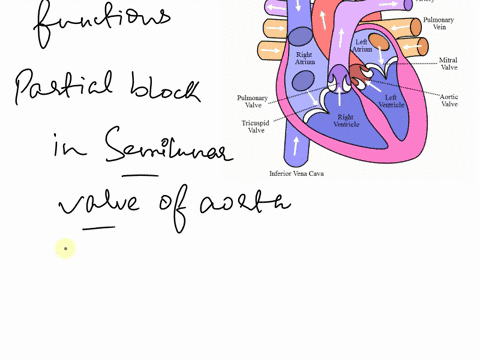 functions
Partial block
in Semilunar
valve of aorta
Pulmonary
Vein
Left
Atrium
Right
Atrium
Mitral
Valve
Pulmonary
Valve
Aortic
Valve
Left
Ventricle
Tricuspid
Valve
Right
Ventricle
Inferior Vena Cava